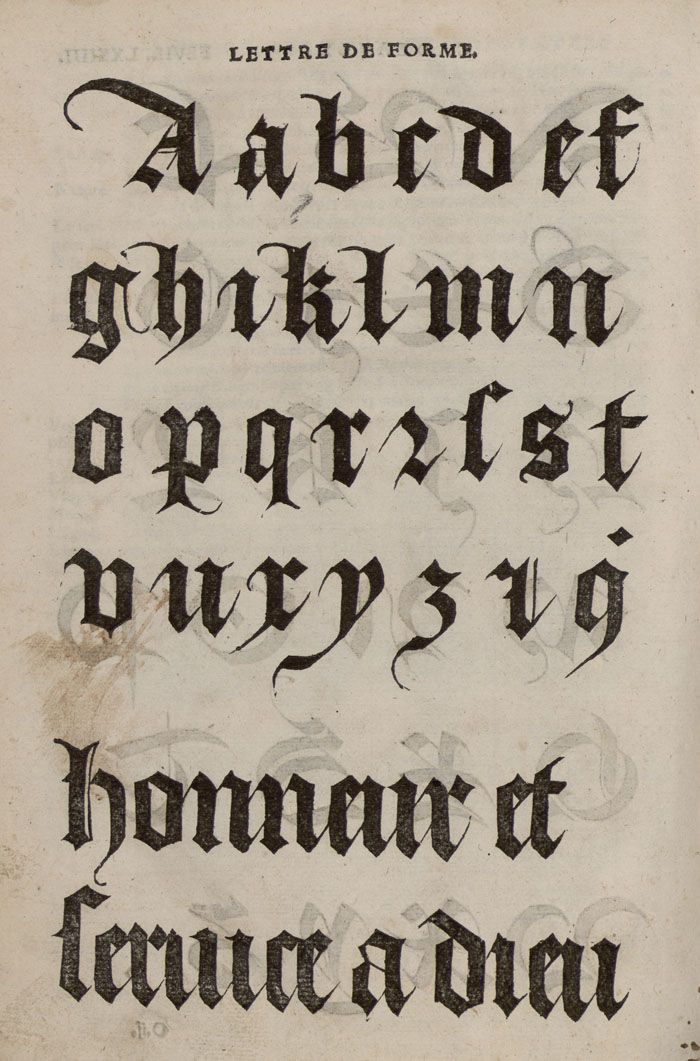 LETTRE DE FORME.
A a b c d e f
g h i k l m n
o p q r ꝛ ſ s t
v u x y z ꝫ q̇
honneur et
ſeruice a dieu